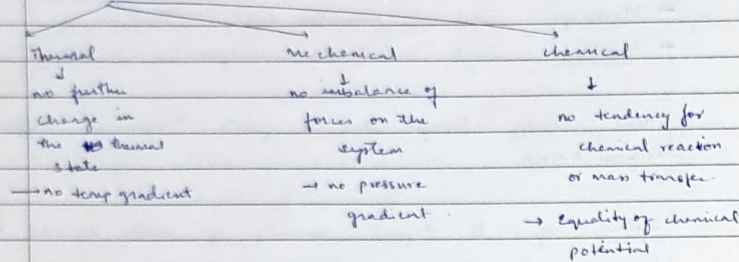 Thermal
↓
no further
change in
the thermal
state
→ no temp gradient
Mechanical
↓
no imbalance of
forces on the
system
→ no pressure
gradient.
Chemical
↓
no tendency for
chemical reaction
or mass transfer.
→ Equality of chemical
potential